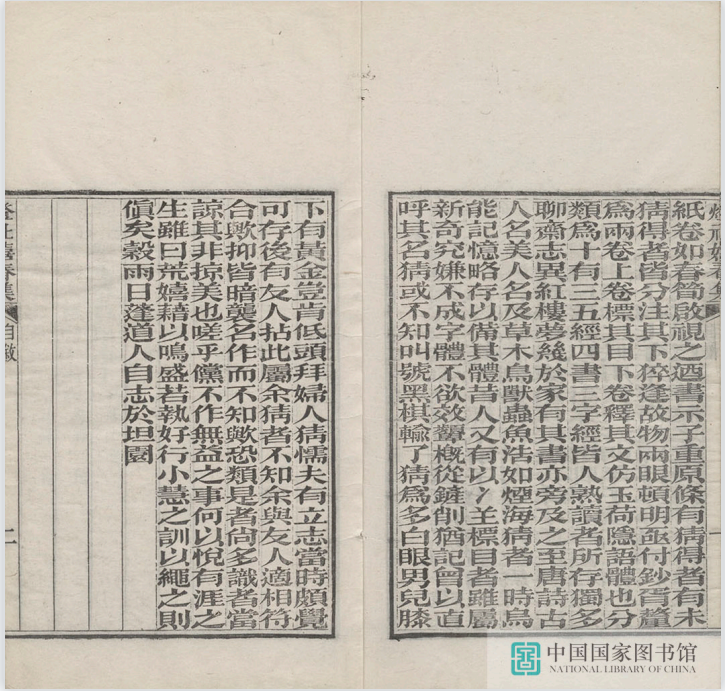 紙卷如春筍啟視之迺書示子重原條有猜得者有未
猜得者皆分注其下猝逢故物兩眼頓明亟付鈔胥釐
為兩卷上卷標其目下卷釋其文仿玉荷隱語體也分
類為十有三五經四書三字經皆人熟讀者所存獨多
聊齋志異紅樓夢幾於家有其書亦旁及之至唐詩古
人名美人名及草木鳥獸蟲魚浩如煙海猜者一時烏
能記憶略存以備其體昔人又有以冫𦍌標目者雖屬
新奇究嫌不成字體不欲效顰概從鏟削猶記曾以直
呼其名猜或不知叫號黑棋輸了猜為多白眼男兒膝
下有黃金豈肯低頭拜婦人猜懦夫有立志當時頗覺
可存後有友人拈此屬余猜者不知余與友人適相符
合歟抑皆暗襲名作而不知歟恐類是者尚多識者當
諒其非掠美也嗟乎儻不作無益之事何以悅有涯之
生雖曰荒嬉藉以鳴盛若執好行小慧之訓以繩之則
傎矣穀雨日蓬道人自志於坦園
自敘
二
中国国家图书馆
NATIONAL LIBRARY OF CHINA